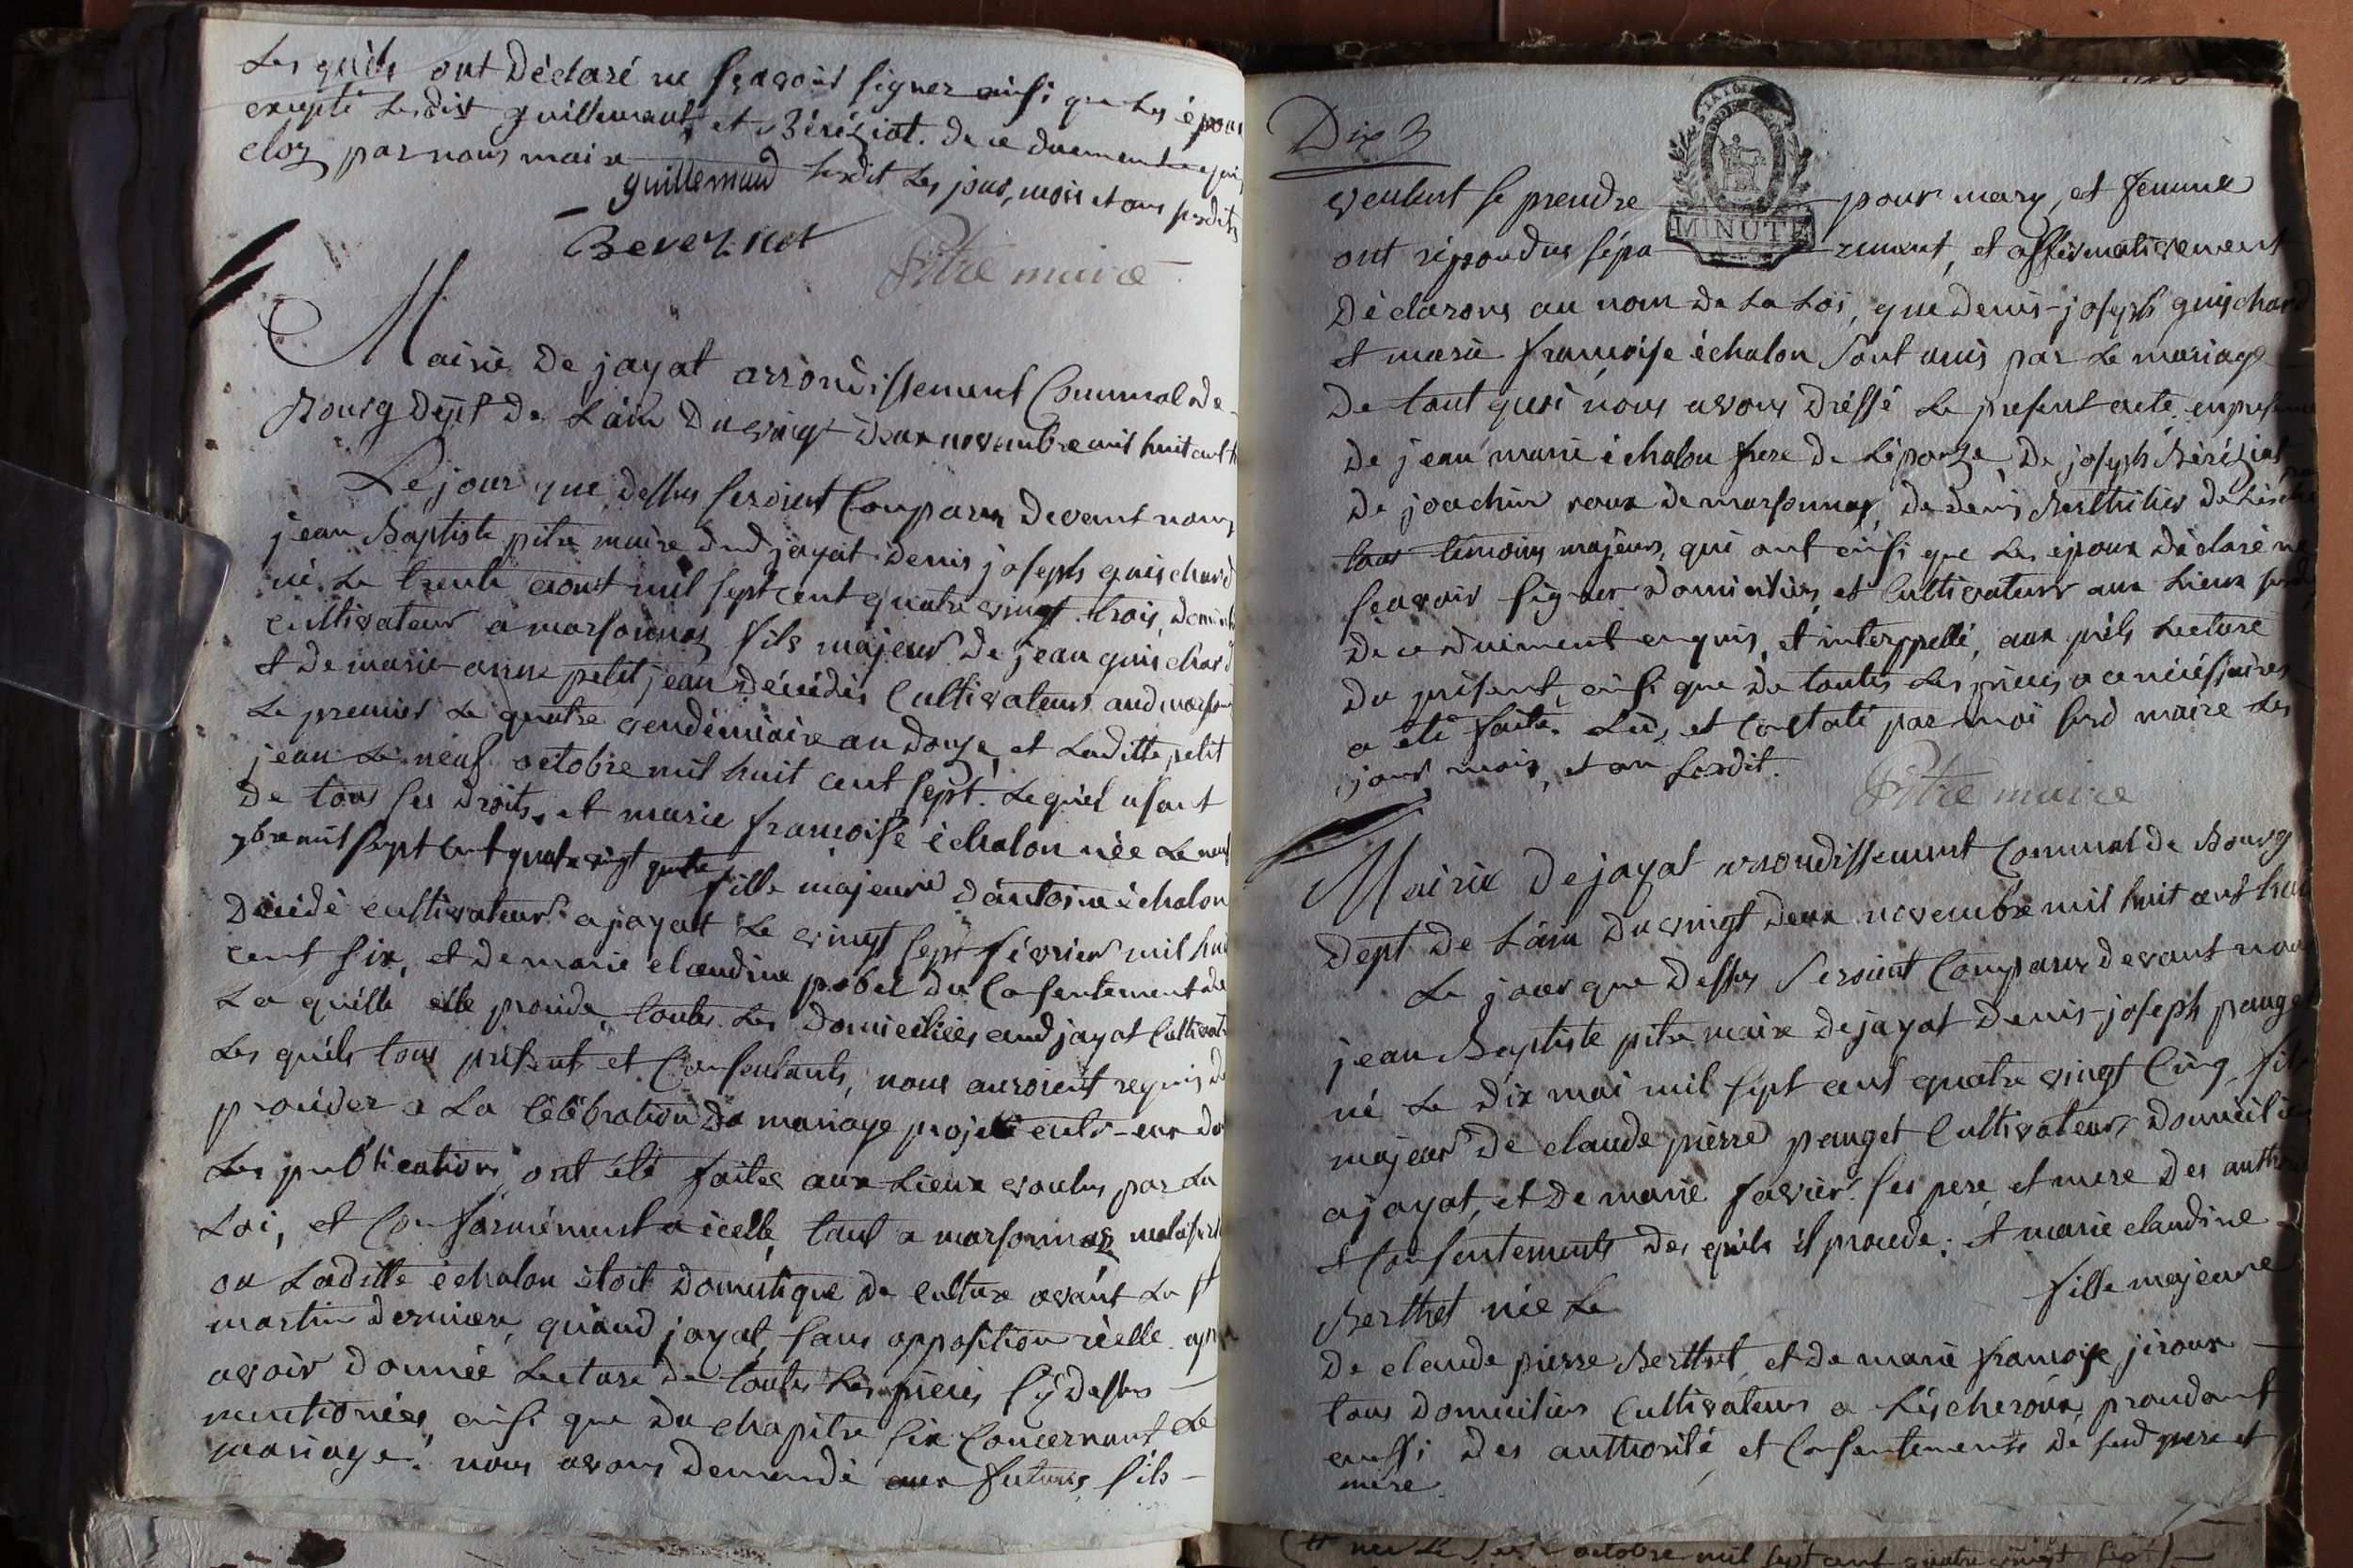 Les quils ont Déclaré ne sçavoir signer ainsi que Les époux
excepté Lesdist guillemaud, et Béréziat. de ce duement enquis
clos par nous maire susdit Les jour, mois et ans susdits
guillemaud
Bereziat
Pitre maire
Mairie De jayat arrondissement Communal de
Bourg Dept De L'ain Du vingt-deux novembre mil huit cent h
Le jour que dessus seroient Comparus Devant nous
jean Baptiste pitre maire dud jayat Denis joseph guichard
né Le trente aout mil sept cent quatre vingt trois, domicilié
cultivateur a marsonnas fils majeur De jean guichard
et De marie-anne petit jean décédés Cultivateurs aud marsonnas
Le premier Le quatre vendémiaire an douze, et Laditte petit
jean Le neuf octobre mil huit cent sept. Lequel usant
De tous ses Droits. et marie françoise échalon née Le neuf
9bre mil sept cent quatre vingt quatre fille majeure d'antoine échalon
Décédé cultivateur a jayat Le vingt sept février mil huit
cent six, et De marie claudine pobel du Consentement de
La quélle elle procède, toutes Les Domiciliées aud jayat Cultivat
Les quéls tous présents et Consentants, nous auroient requis de
procéder a La Célébration Du mariage projetté entr-eux dont
Les publications ont été faites aux Lieux voulus par La
Loi, et Conformément a icelle, tant a marsonnas malafret
ou Laditte échalon étoit Domestique De culture avant La st
martin Derniere, qu'aud jayat, sans opposition réelle. après
avoir Donnée Lecture De toutes Les pieces cÿ dessus
mentionées, ainsi que du chapitre six Concernant Le
mariage. nous avons Demandé aux futurs, s'ils
Dix 3
MINUTE
veulent se prendre pour mary, et femme
ont répondus séparément, et affirmativement
Déclarons au nom De La Loi, que Denis-joseph guichard
et marie françoise échalon sont unis par Le mariage
De tout quoi nous avons Dréssé Le present acte, en presence
De jean marie échalon frere De L'épouze, De joseph Béréziat
De joachim roux De marsonnas, De Denis Berthilier De Lesch
tous témoins majeurs, qui ont ainsi que Les époux Déclaré ne
sçavoir signer Domiciliés, et Cultivateurs aux Lieux susd
De ce duiment enquis, et interppellé, aux quéls Lecture
Du présent, ainsi que De toutes Les pieces a ce nécéssaires
a été faite. Lu, et Constaté par moi susd maire Les
jour, mois, et an susdit.
Pitre maire
Mairie De jayat arrondissement Communal De Bourg
Dept De L'ain Du vingt deux novembre mil huit cent huit
Le jour que Dessus seroient Comparus devant nous
jean Baptiste pitre maire De jayat Denis-joseph pauget
né Le Dix mai mil sept cent quatre vingt Cinq, fils
majeur De claude pierre pauget Cultivateurs Domicilié
a jayat, et De marie favier ses pere, et mere Des authorité
et Consentements Des quéls il procede; et marie claudine
Berthet née Le fille majeure
De claude pierre Berthet, et De marie françoise jiroux
tous Domiciliés Cultivateurs a Léscheroux, procdant
aussi Des authorité, et Consentements De sesd pere et
mere.